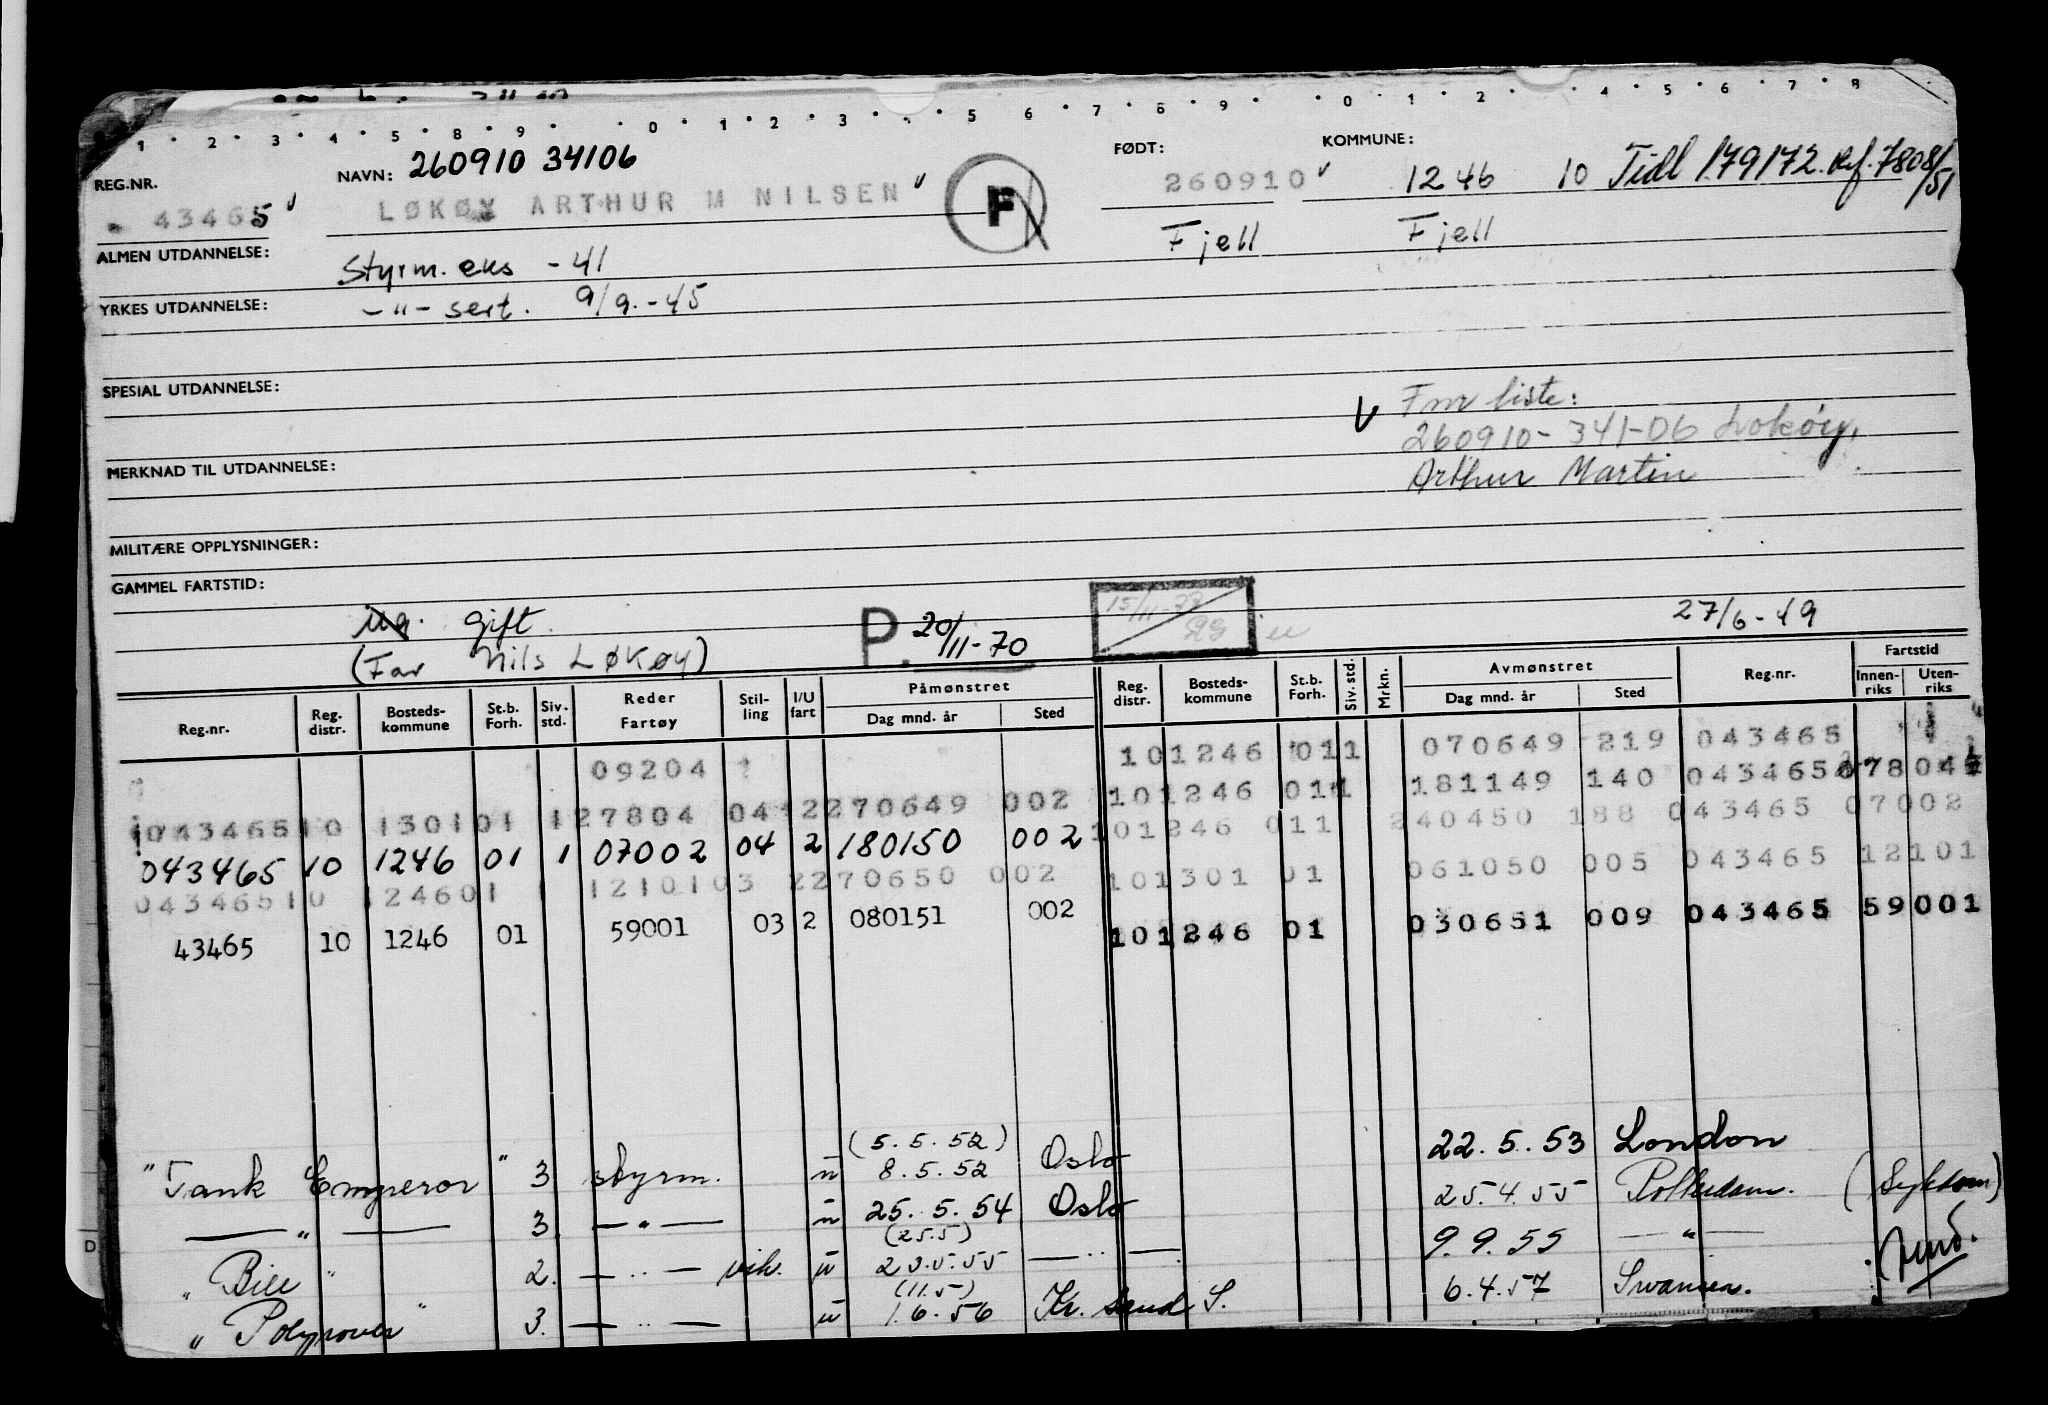 1 2 3 4 5 8 9 0 1 2 3 5 6 7 8 9 0 1 2 4 5 6 7 8
REG.NR. NAVN: 260910 34106 FØDT: KOMMUNE:
43465 LØKØY ARTHUR M NILSEN F 260910 1246 10 Tidl 179172. Ref. 7808/51
ALMEN UTDANNELSE: Styrm. eks - 41 Fjell Fjell
YRKES UTDANNELSE: - " - sert. 9/9.-45
SPESIAL UTDANNELSE:
V Fmr liste:
260910-341-06 Løkøy,
MERKNAD TIL UTDANNELSE: Arthur Martin
MILITÆRE OPPLYSNINGER:
GAMMEL FARTSTID:
Ug. gift. P. 20/11-70 15/11-73 27/6-49
(Far Nils LØKØY)
Reg.nr. Reg. distr. Bosteds-kommune St.b. Forh. Siv. std. Reder Fartøy Stil-ling I/U fart Påmønstret Dag mnd. år Sted Reg. distr. Bosteds-kommune St.b. Forh. Siv. std. Mrkn. Avmønstret Dag mnd. år Sted Reg.nr. Fartstid Innen-riks Uten-riks
09204 101246 011 070649 219 043465
04346510 130101 127804 04 2270649 002 101246 011 181149 140 043465 07804
043465 10 1246 01 1 07002 04 2 180150 002 101246 011 240450 188 043465 07002
04346510 124601 1 1210103 2270650 002 101301 01 061050 005 043465 12101
43465 10 1246 01 59001 03 2 080151 002 101246 01 030651 009 043465 59001
(5.5.52)
"Tank Emperor" 3 styrm. u 8.5.52 Oslo 22.5.53 London
— " — 3 — " — u 25.5.54 Oslo 25.4.55 Rotterdam. (Sykdom)
(25.5)
"Bill" 2. — " — vik. u 23.5.55 — " — 9.9.55 — " —
(11.5)
"Polyrover" 3. — " — u 1.6.56 Kr. sand S. 6.4.57 Swansea.